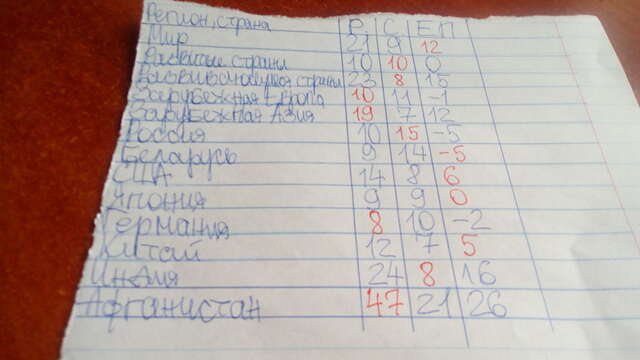 Регион, страна Р С ЕП
Мир 21 9 12
Развитые страны 10 10 0
Развивающиеся страны 23 8 15
Зарубежная Европа 10 11 -1
Зарубежная Азия 19 7 12
Россия 10 15 -5
Беларусь 9 14 -5
США 14 8 6
Япония 9 9 0
Германия 8 10 -2
Китай 12 7 5
Индия 24 8 16
Афганистан 47 21 26